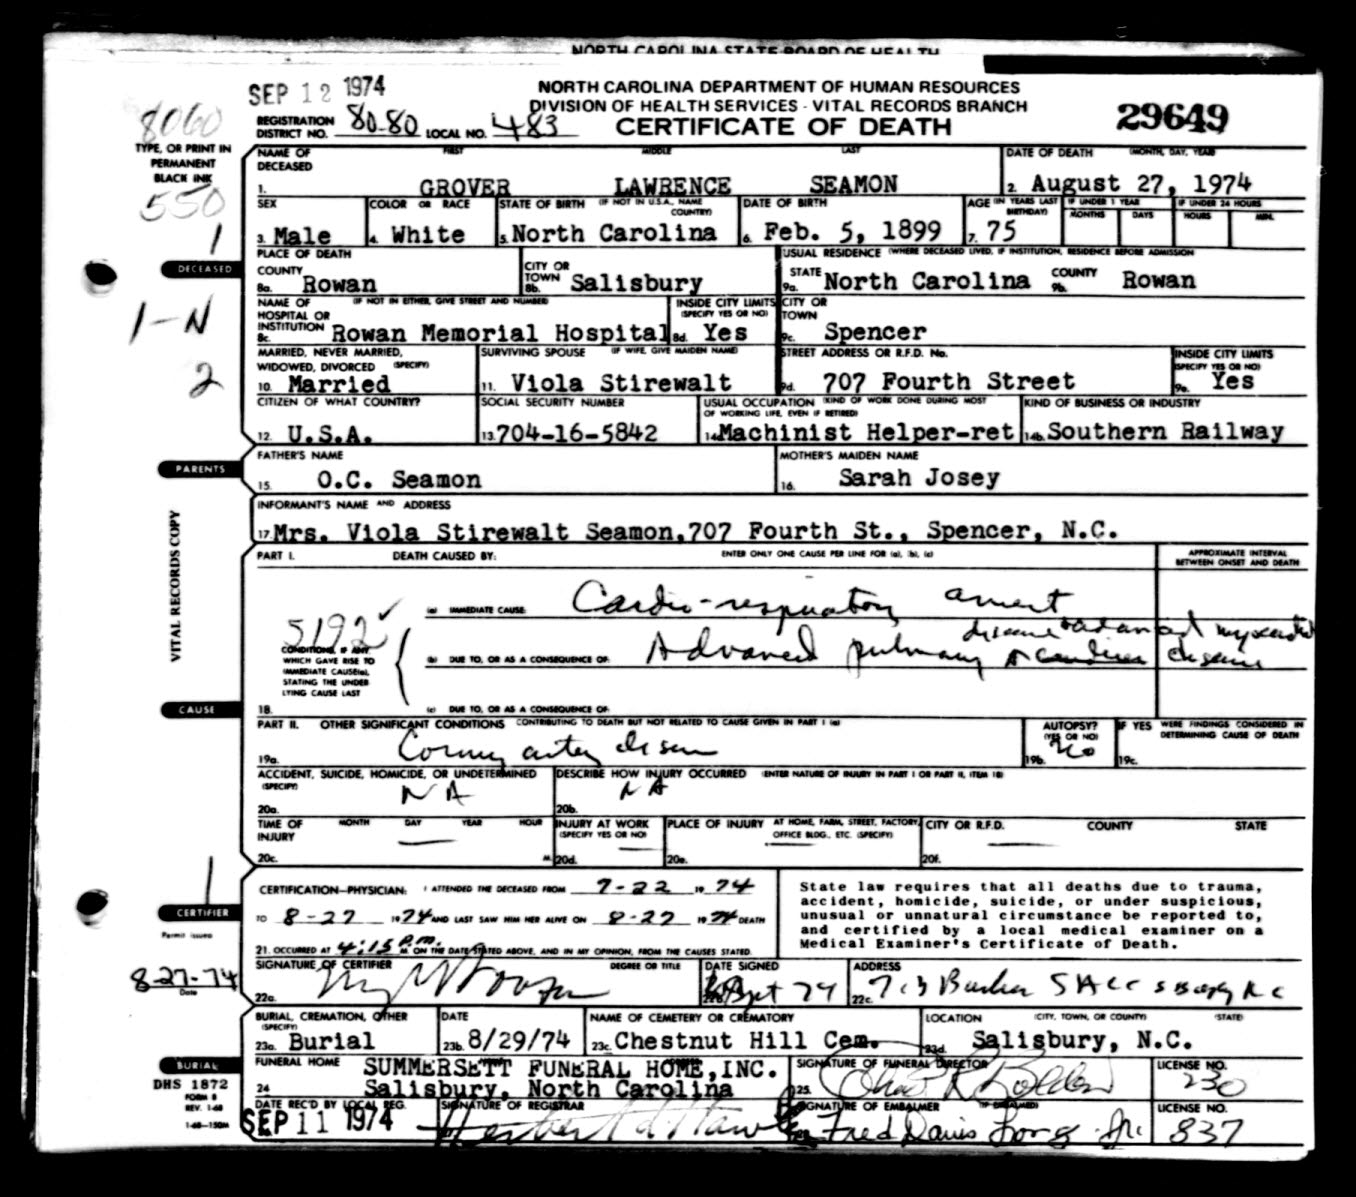 NORTH CAROLINA STATE BOARD OF HEALTH
SEP 12 1974
NORTH CAROLINA DEPARTMENT OF HUMAN RESOURCES
DIVISION OF HEALTH SERVICES - VITAL RECORDS BRANCH
CERTIFICATE OF DEATH
29649
8060
REGISTRATION DISTRICT NO. 80-80 LOCAL NO. 483
TYPE, OR PRINT IN
PERMANENT
BLACK INK
550
1
NAME OF DECEASED FIRST MIDDLE LAST DATE OF DEATH (MONTH, DAY, YEAR)
1. GROVER LAWRENCE SEAMON 2. August 27, 1974
SEX COLOR OR RACE STATE OF BIRTH (IF NOT IN U.S.A., NAME COUNTRY) DATE OF BIRTH AGE (IN YEARS LAST BIRTHDAY) IF UNDER 1 YEAR MONTHS DAYS IF UNDER 24 HOURS HOURS MIN.
3. Male 4. White 5. North Carolina 6. Feb. 5, 1899 7. 75
DECEASED
PLACE OF DEATH USUAL RESIDENCE (WHERE DECEASED LIVED, IF INSTITUTION, RESIDENCE BEFORE ADMISSION
COUNTY 8a. Rowan CITY OR TOWN 8b. Salisbury STATE 9a. North Carolina COUNTY 9b. Rowan
1-N
NAME OF HOSPITAL OR INSTITUTION (IF NOT IN EITHER, GIVE STREET AND NUMBER) INSIDE CITY LIMITS (SPECIFY YES OR NO) CITY OR TOWN
8c. Rowan Memorial Hospital 8d. Yes 9c. Spencer
2
MARRIED, NEVER MARRIED, WIDOWED, DIVORCED (SPECIFY) SURVIVING SPOUSE (IF WIFE, GIVE MAIDEN NAME) STREET ADDRESS OR R.F.D. No. INSIDE CITY LIMITS (SPECIFY YES OR NO)
10. Married 11. Viola Stirewalt 9d. 707 Fourth Street 9e. Yes
CITIZEN OF WHAT COUNTRY? SOCIAL SECURITY NUMBER USUAL OCCUPATION (KIND OF WORK DONE DURING MOST OF WORKING LIFE, EVEN IF RETIRED) KIND OF BUSINESS OR INDUSTRY
12. U.S.A. 13. 704-16-5842 14a. Machinist Helper-ret 14b. Southern Railway
PARENTS
FATHER'S NAME MOTHER'S MAIDEN NAME
15. O.C. Seamon 16. Sarah Josey
INFORMANT'S NAME AND ADDRESS
17. Mrs. Viola Stirewalt Seamon, 707 Fourth St., Spencer, N.C.
VITAL RECORDS COPY
PART I. DEATH CAUSED BY: ENTER ONLY ONE CAUSE PER LINE FOR (a), (b), (c) APPROXIMATE INTERVAL BETWEEN ONSET AND DEATH
(a) IMMEDIATE CAUSE: Cardio-respiratory arrest
5192
CONDITIONS, IF ANY WHICH GAVE RISE TO IMMEDIATE CAUSE(a), STATING THE UNDERLYING CAUSE LAST
(b) DUE TO, OR AS A CONSEQUENCE OF: Advanced pulmonary disease
disease
CAUSE
18. (c) DUE TO, OR AS A CONSEQUENCE OF:
PART II. OTHER SIGNIFICANT CONDITIONS CONTRIBUTING TO DEATH BUT NOT RELATED TO CAUSE GIVEN IN PART I (a) AUTOPSY? (YES OR NO) IF YES WERE FINDINGS CONSIDERED IN DETERMINING CAUSE OF DEATH
19a. Coronary artery disease 19b. No 19c.
ACCIDENT, SUICIDE, HOMICIDE, OR UNDETERMINED (SPECIFY) DESCRIBE HOW INJURY OCCURRED (ENTER NATURE OF INJURY IN PART I OR PART II, ITEM 18)
20a. NA 20b. NA
TIME OF INJURY MONTH DAY YEAR HOUR INJURY AT WORK (SPECIFY YES OR NO) PLACE OF INJURY AT HOME, FARM, STREET, FACTORY, OFFICE BLDG., ETC. (SPECIFY) CITY OR R.F.D. COUNTY STATE
20c. M. 20d. 20e. 20f.
1
CERTIFIER
CERTIFICATION—PHYSICIAN: I ATTENDED THE DECEASED FROM 7-22 19 74
TO 8-27 1974 AND LAST SAW HIM HER ALIVE ON 8-27 1974 DEATH
21. OCCURRED AT 4:15 P.M. M. ON THE DATE STATED ABOVE, AND IN MY OPINION, FROM THE CAUSES STATED.
State law requires that all deaths due to trauma,
accident, homicide, suicide, or under suspicious,
unusual or unnatural circumstance be reported to,
and certified by a local medical examiner on a
Medical Examiner's Certificate of Death.
Permit issued
8-27-74
Date
SIGNATURE OF CERTIFIER DEGREE OR TITLE DATE SIGNED ADDRESS
22a. 22b. Sept 74 22c.
BURIAL, CREMATION, OTHER (SPECIFY) DATE NAME OF CEMETERY OR CREMATORY LOCATION (CITY, TOWN, OR COUNTY) (STATE)
23a. Burial 23b. 8/29/74 23c. Chestnut Hill Cem. 23d. Salisbury, N.C.
BURIAL
DHS 1872
FORM 8
REV. 1-68
1-68-150M
FUNERAL HOME SUMMERSETT FUNERAL HOME, INC. SIGNATURE OF FUNERAL DIRECTOR LICENSE NO.
24 Salisbury, North Carolina 25. 230
DATE REC'D BY LOCAL REG. SIGNATURE OF REGISTRAR SIGNATURE OF EMBALMER (IF EMBALMED) LICENSE NO.
SEP 11 1974 Fred Davis Jr. 837